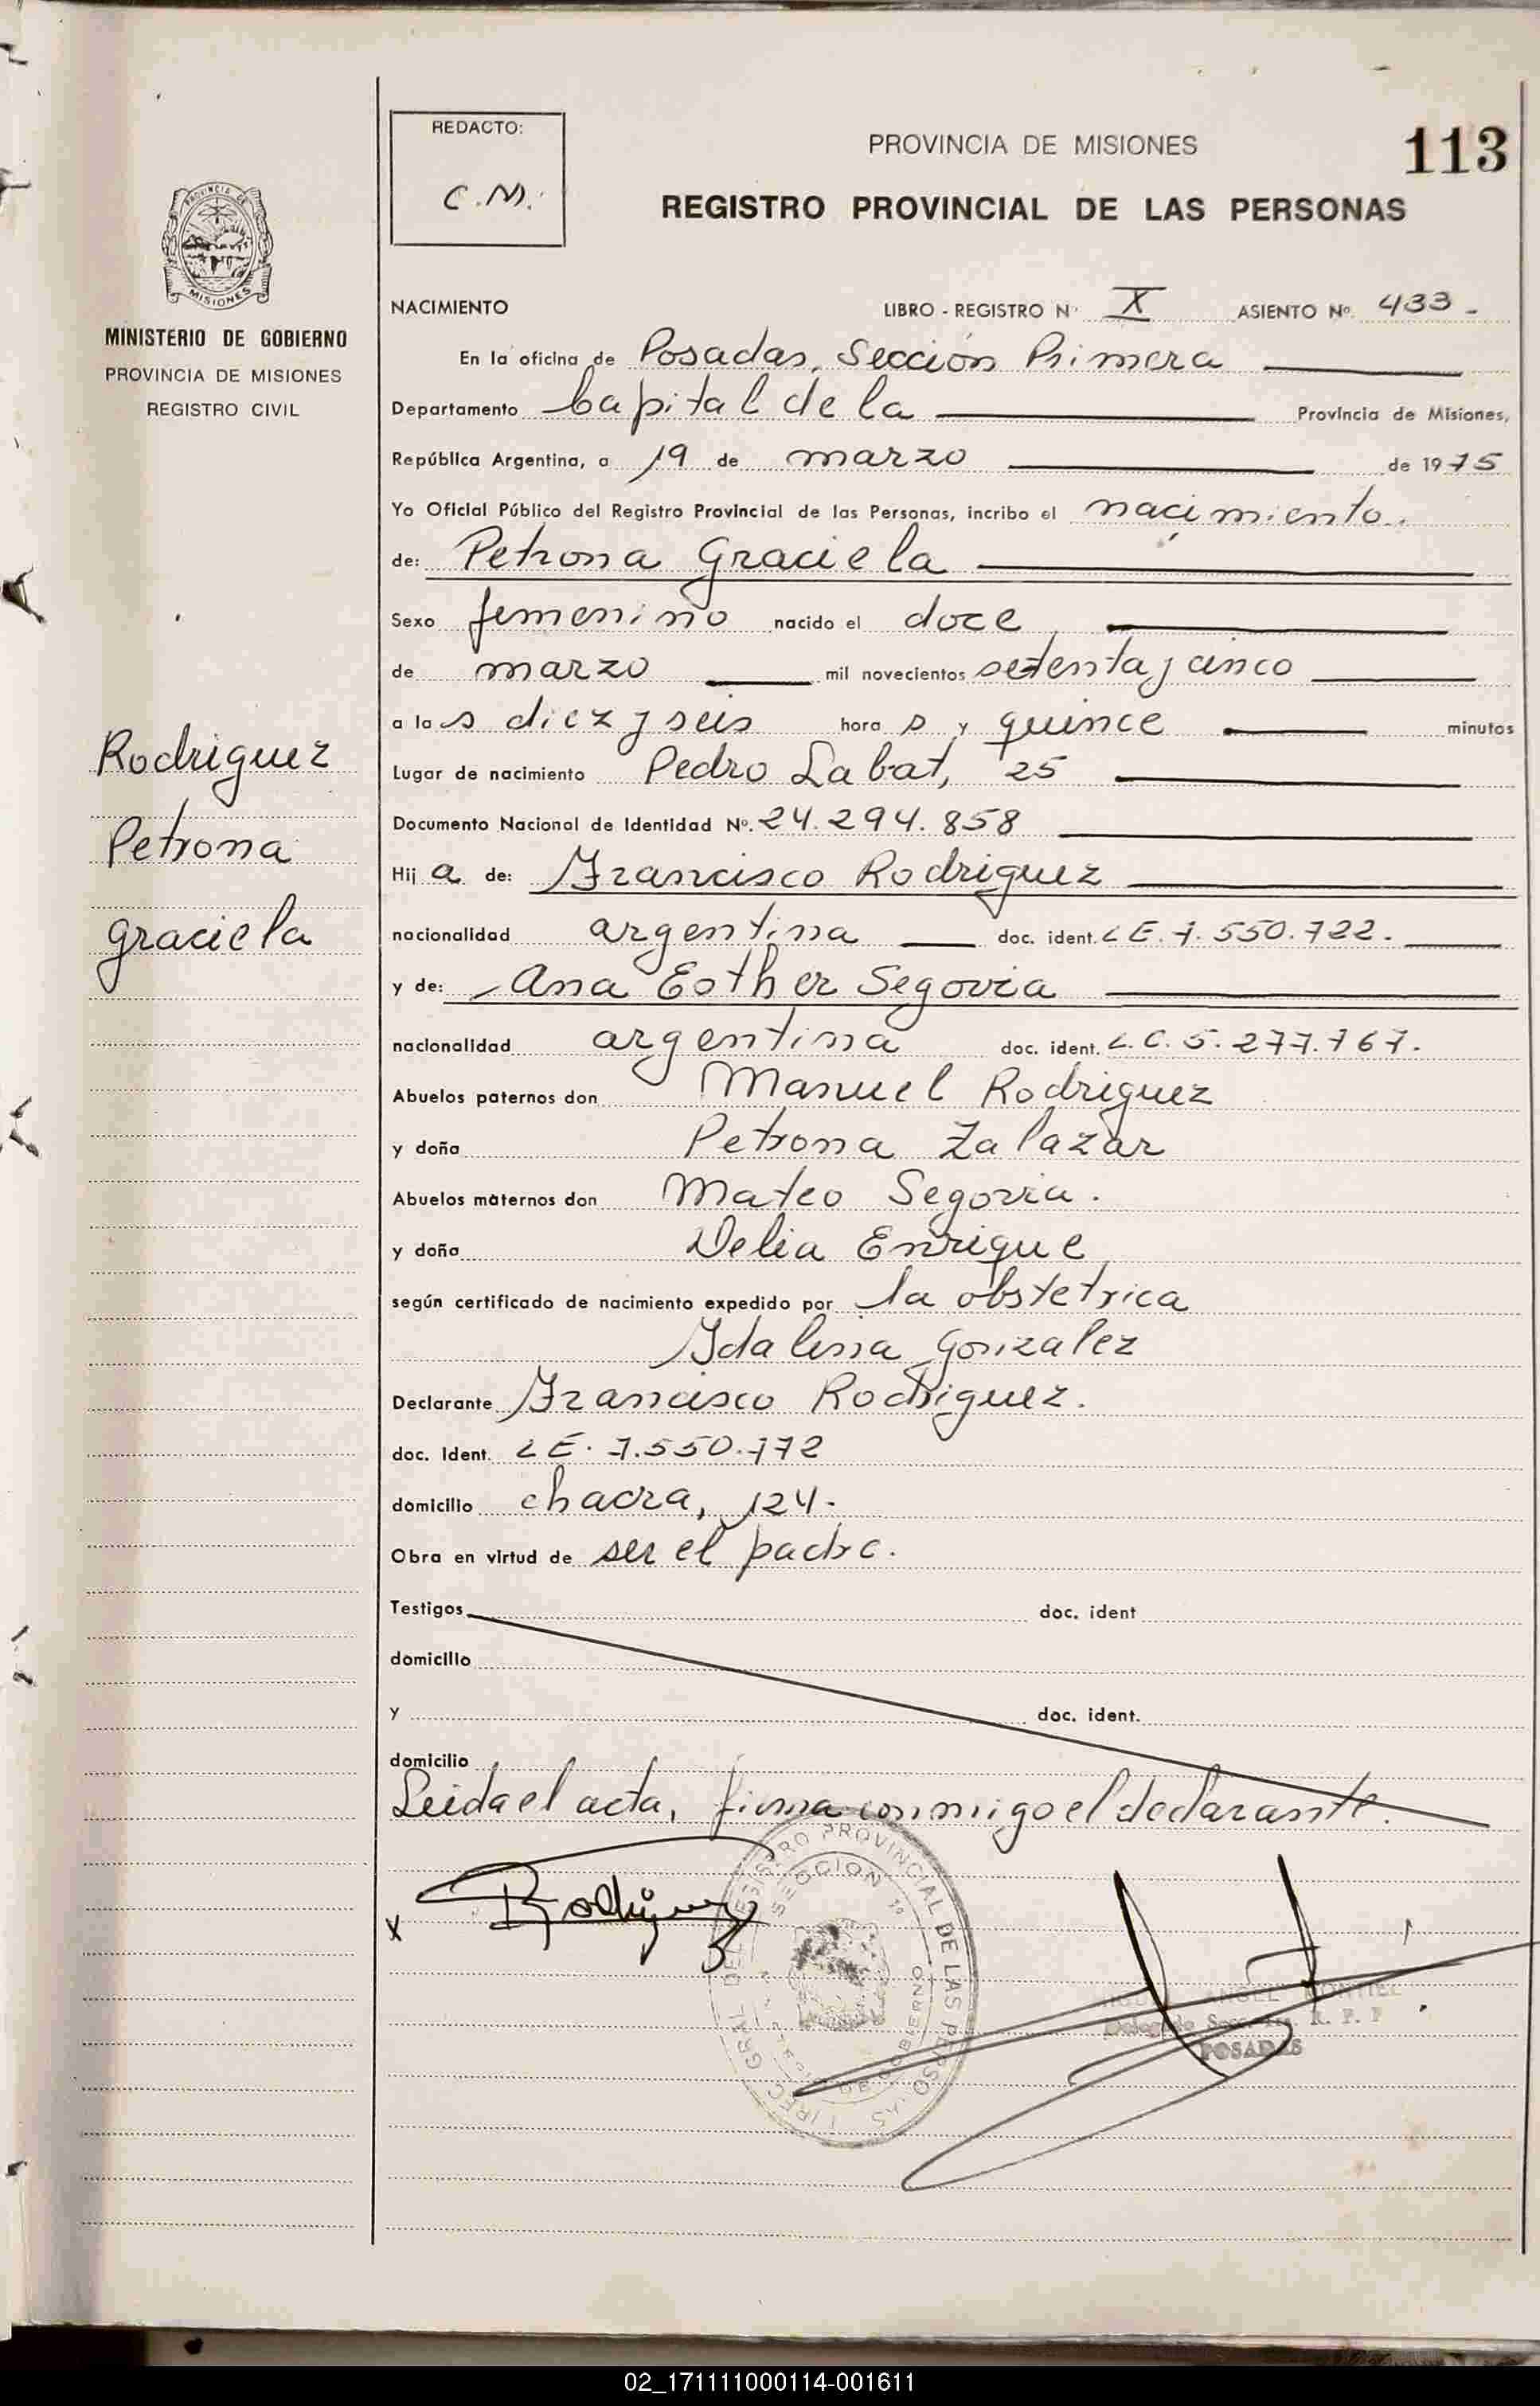 REDACTO:
C.M.
PROVINCIA DE MISIONES
113
REGISTRO PROVINCIAL DE LAS PERSONAS
MISIONES
MINISTERIO DE GOBIERNO
PROVINCIA DE MISIONES
REGISTRO CIVIL
NACIMIENTO LIBRO - REGISTRO Nº X ASIENTO Nº 433 -
En la oficina de Posadas, Sección Primera
Departamento Capital de la Provincia de Misiones,
República Argentina, a 19 de marzo de 1975
Yo Oficial Público del Registro Provincial de las Personas, incribo el nacimiento.
de: Petrona Graciela
Sexo femenino nacido el doce
de marzo mil novecientos setenta y cinco
a las diez y seis horas y quince minutos
Lugar de nacimiento Pedro Labat, 25
Documento Nacional de Identidad Nº. 24.294.858
Hija de: Francisco Rodriguez
nacionalidad argentina doc. ident. LE. 7.550.722.
y de: Ana Esther Segovia
nacionalidad argentina doc. ident. L.C. 5.277.767.
Abuelos paternos don Manuel Rodriguez
y doña Petrona Zalazar
Abuelos maternos don Mateo Segovia.
y doña Delia Enrique
según certificado de nacimiento expedido por la obstetrica
Idalina Gonzalez
Declarante Francisco Rodriguez.
doc. Ident. LE. 7.550.772
domicilio chacra, 124.
Obra en virtud de ser el padre.
Testigos doc. ident
domicilio
y doc. ident.
domicilio
Leida el acta, firma conmigo el declarante.
Rodriguez
Petrona
Graciela
x Rodriguez
REGISTRO PROVINCIAL DE LAS PERSONAS
SECCION 1ª
DE GOBIERNO
ANGEL MONTIEL
Delegado R. P. P
POSADAS
02_171111000114-001611